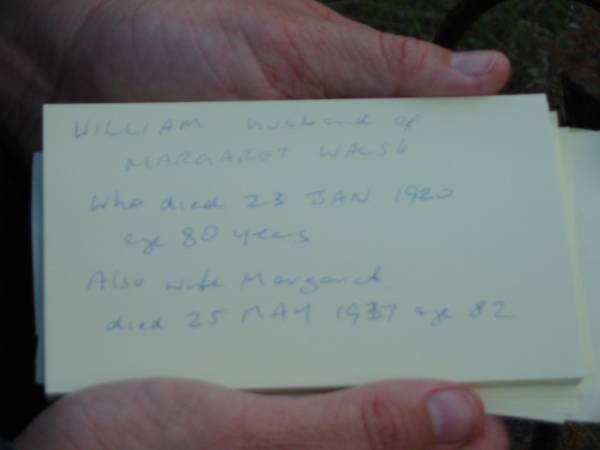 WILLIAM husband of
MARGARET WALSH
Who died 23 JAN 1920
age 80 years
Also wife Margaret
died 25 MAY 1937 age 82